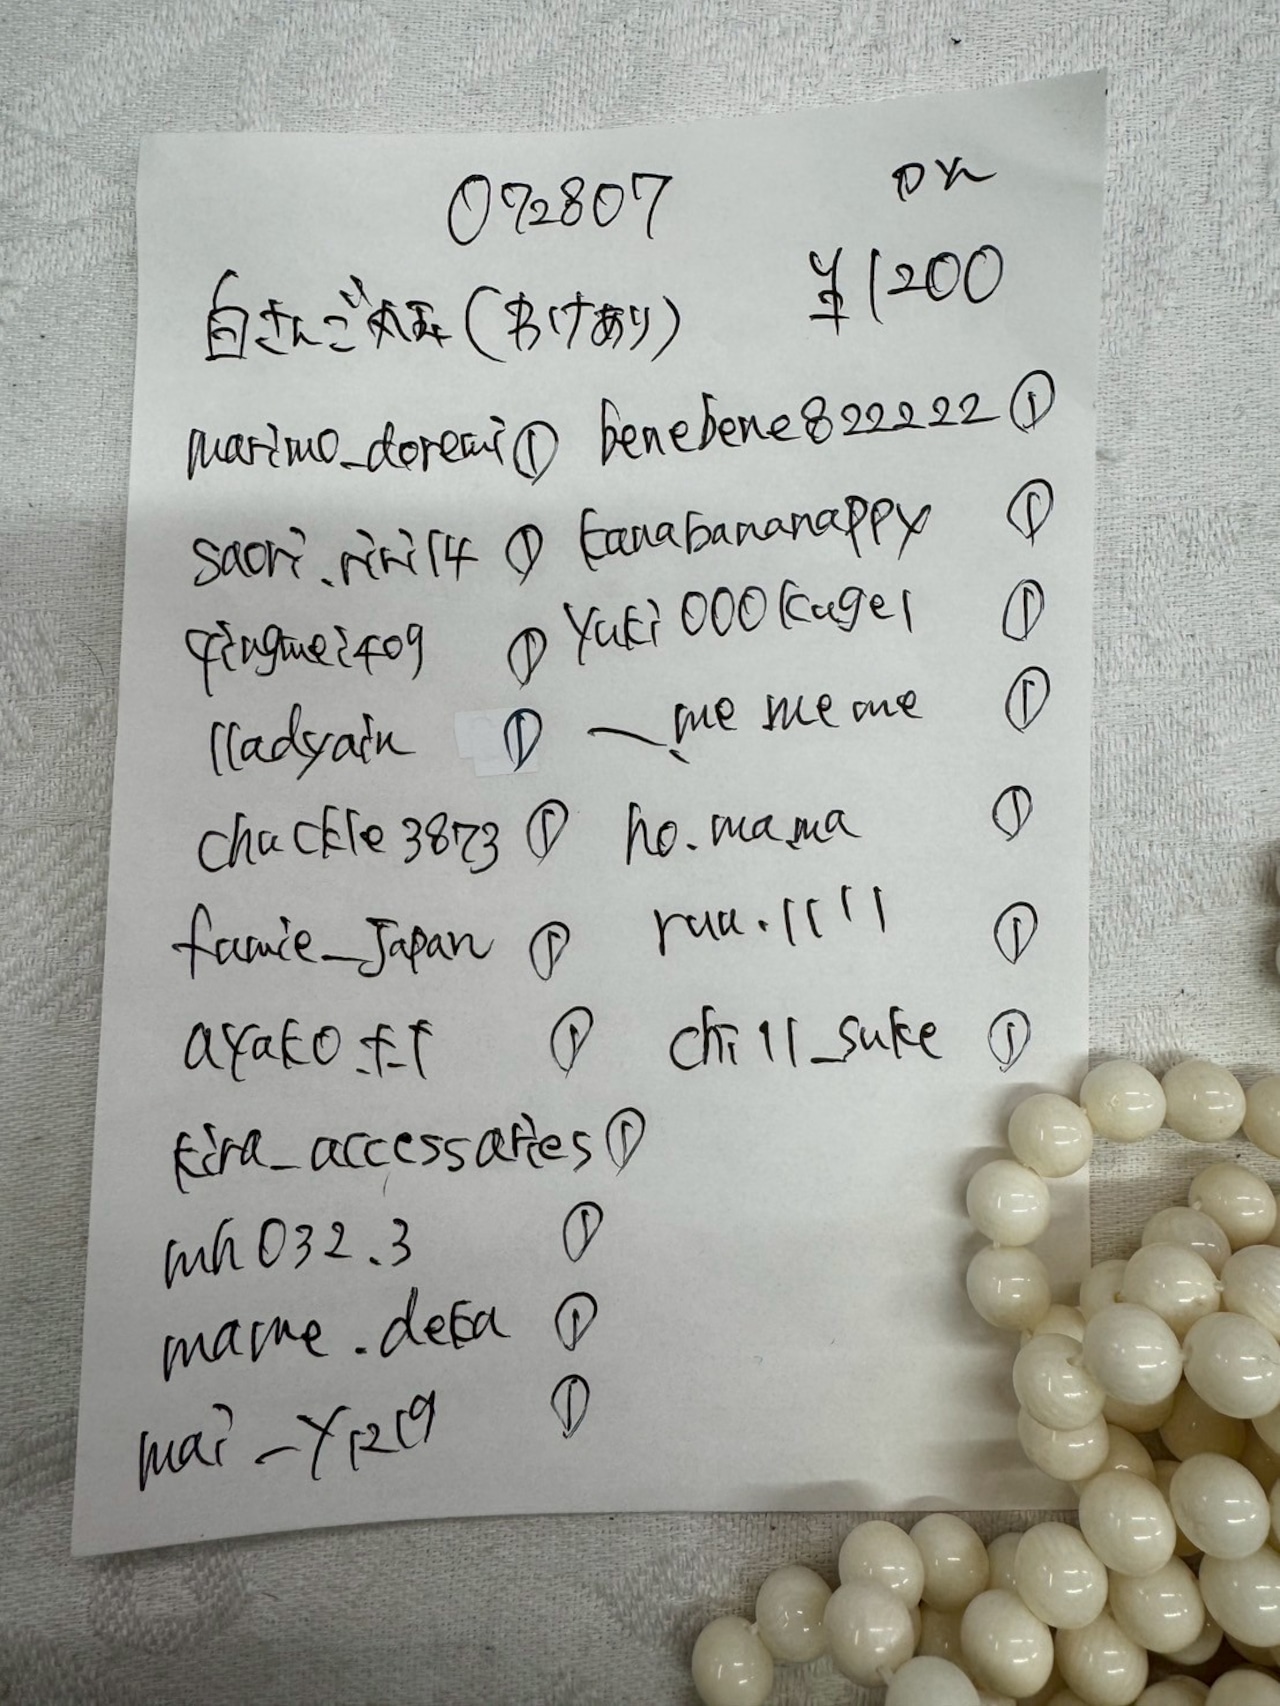 072807
¥1200
白さんご丸玉(わけあり)
marimo_doremi① benebene822222①
saori.riri14 ① kanabananappy ①
qingmei409 ① Yuki000kugel ①
lladyain ① ①
chuckle3873 ① ho.mama ①
famie_japan ① ruu.1111 ①
①  chill_suke ①
kira_accessaries①
mh032.3 ①
mame.deka ①
mai_y1219 ①